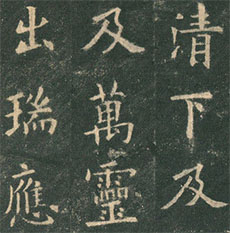 清下及
及萬靈
出瑞應